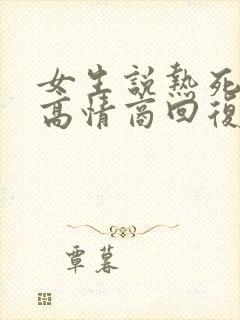 女生說熱死
高情商回復
覃暮